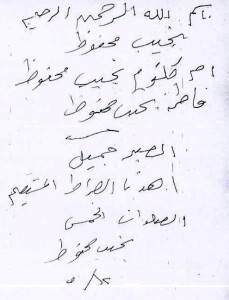 بسم الله الرحمن الرحيم
نجيب محفوظ
ام كلثوم نجيب محفوظ
فاطمة نجيب محفوظ
الصبر جميل
اهدنا الصراط المستقيم
الصلوات الخمس
نجيب محفوظ